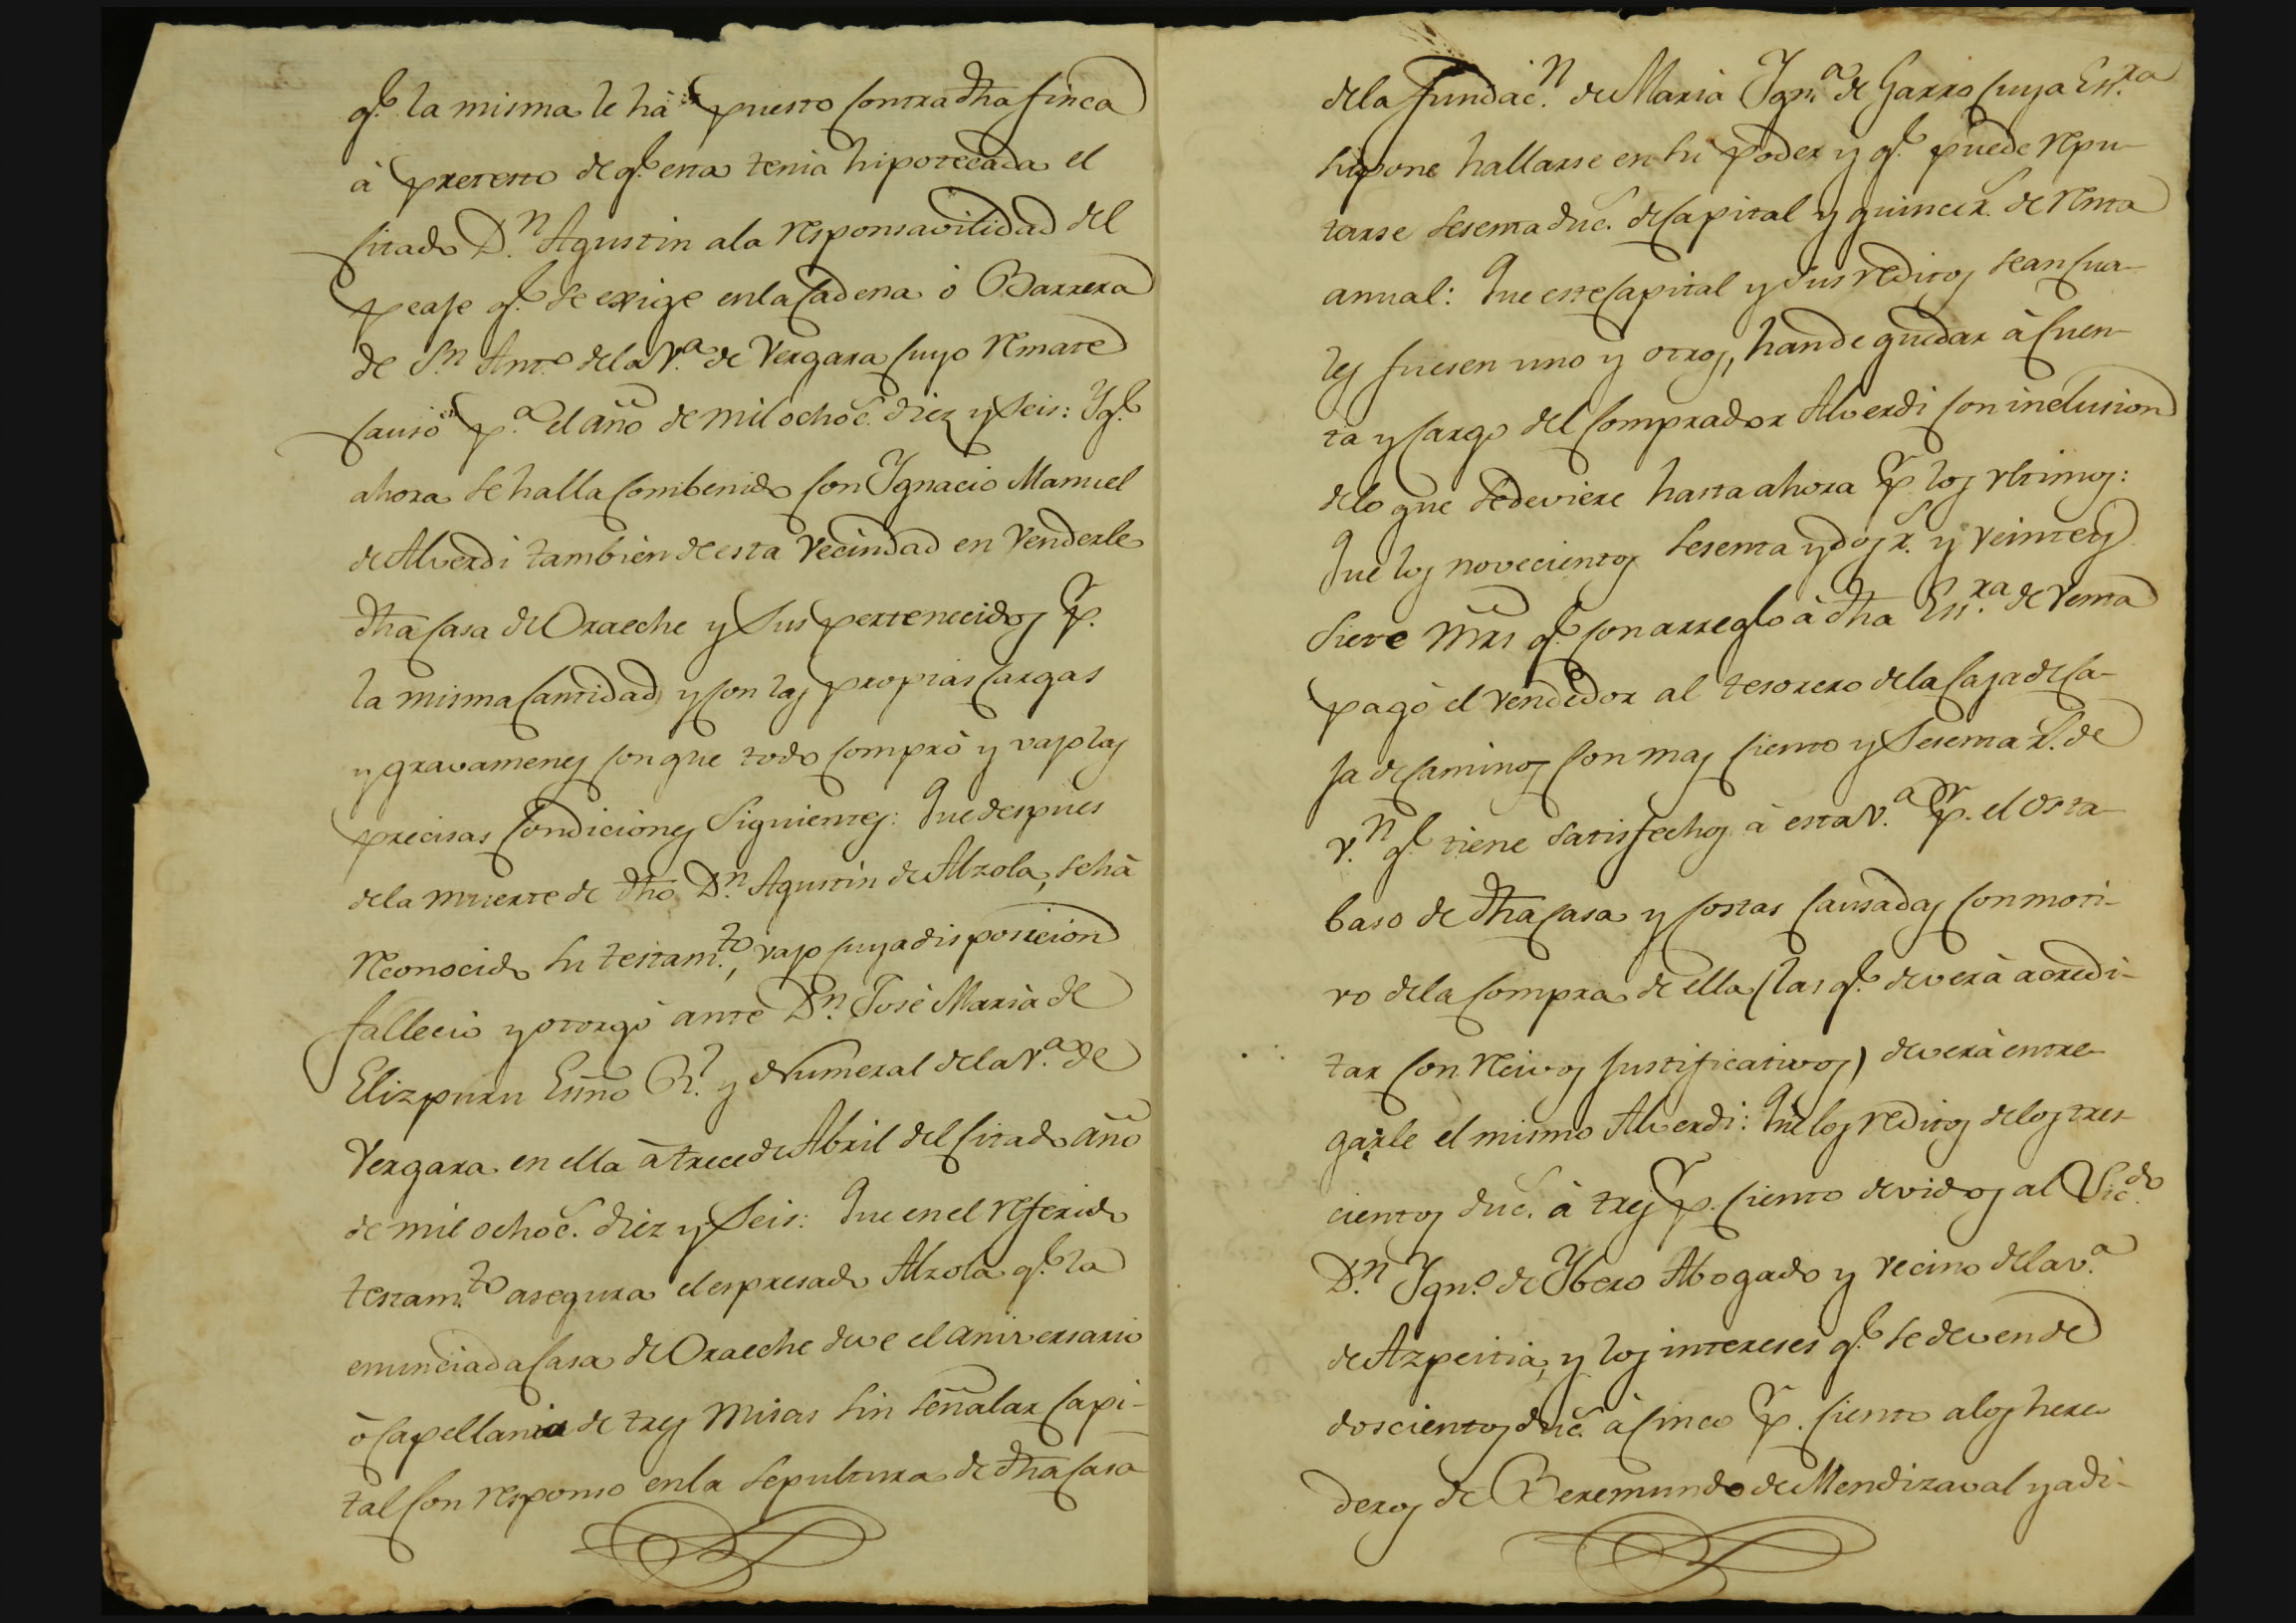 q.e la misma le há puesto contra dha finca
à pretesto de q.e esta tenia hipotecada el
citado D.n Agustin ala responsavilidad del
peage q.e se exige enla Cadena ò Barrera
de S.n Ant.o dela V.a de Vergara cuyo remate
causò p.a el año de mil ochoc.s diez y Seis: Y q.e
ahora se halla combenido con Ygnacio Manuel
de Alverdi tambien de esta Vecindad en Venderle
dha Casa de Oraeche y Sus pertenecidos p.r
la misma Cantidad y con las propias Cargas
y gravamenes con que todo comprò y vajo las
precisas Condiciones Siguientes: Que despues
dela muerte de dho D.n Agustin de Alzola, se há
reconocido su testam.to, vajo cuya disposicion
fallecio y otorgò ante D.n Josè Maria de
Elizpuru Essno R.l y Numeral dela V.a de
Vergara en ella à trece de Abril del Citado año
de mil ochoc.s diez y Seis: Que en el referido
testam.to asegura el espresado Alzola q.e la
enunciada Casa de Oraeche deve el aniversario
ò Capellania de tres Misas sin señalar Capi-
tal con responso enla Sepultura de dha Casa
dela Fundac.n de Maria Ygn.a de Garro cuya Ess.ra
supone hallarse en su poder y q.e puede repu-
tarse sesenta duc.s de Capital y quince r.s de renta
anual: Que este Capital y Sus reditos sean cua-
les fuesen uno y otros, han de quedar à cuen-
ta y Cargo del Comprador Alverdi con inclusion
delo que se deviere hasta ahora p.r los vltimos:
Que los novecientos sesenta y dos r.s y veinte y
Siete Mrs q.e con arreglo à dha Ess.ra de Venta
pagò el Vendedor al tesorero dela Caja de Ca-
ja de Caminos con mas ciento y Sesenta r.s de
v.n q.e tiene satisfechos à esta V.a p.r el Osta-
baso de dha Casa y costas Causadas con moti-
vo dela Compra de ella (las q.e deverà acredi-
tar con recivos justificativos) deverà entre-
garle el mismo Alverdi: Que los reditos delos tres-
cientos duc.s à tres p.r ciento devidos al Lic.do
D.n Ygn.o de Ybero Abogado y vecino dela v.a
de Azpeitia, y los intereses q.e se deven de
doscientos duc.s à Cinco p.r Ciento alos here-
deros de Beremundo de Mendizaval y adi-